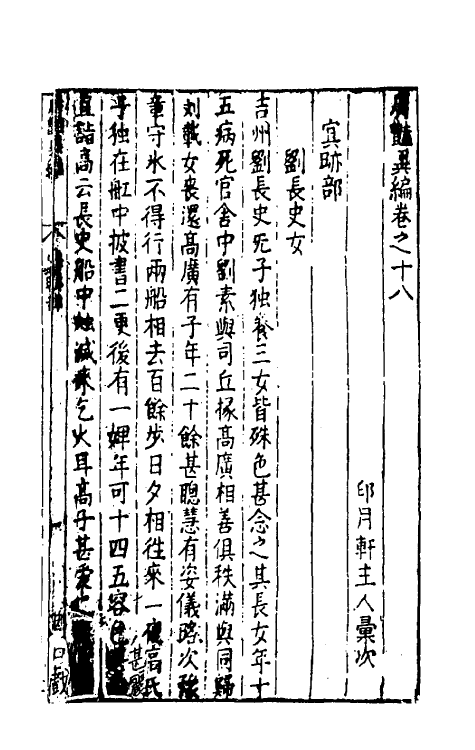 廣艷異編卷之十八
印月軒主人彙次
㝠跡部
劉長史女
吉州劉長史死子独養三女皆殊色甚念之其長女年十
五病死官舍中劉素與司丘掾高廣相善俱秩滿與同歸
刘載女喪還高廣有子年二十餘甚聰慧有姿儀路次
章守氷不得行兩船相去百餘步日夕相徃來一夜高氏
子独在舡中披書二更後有一婢年可十四五容色甚麗
直詣高云長史船中燭滅來乞火耳高子甚愛之